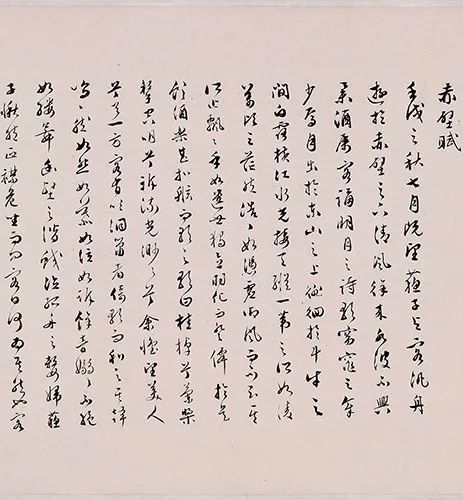 赤壁賦
壬戌之秋七月既望蘇子與客泛舟
遊於赤壁之下清風徐來水波不興
舉酒屬客誦明月之詩歌窈窕之章
少焉月出於東山之上徘徊於斗牛之
間白露橫江水光接天縱一葦之所如凌
萬頃之茫然浩浩乎如馮虛御風而不知其
所止飄飄乎如遺世獨立羽化而登仙於是
飲酒樂甚扣舷而歌之歌曰桂棹兮蘭槳
擊空明兮泝流光渺渺兮余懷望美人
兮天一方客有吹洞簫者倚歌而和之其聲
嗚嗚然如怨如慕如泣如訴餘音嫋嫋不絕
如縷舞幽壑之潛蛟泣孤舟之嫠婦蘇
子愀然正襟危坐而問客曰何為其然也客